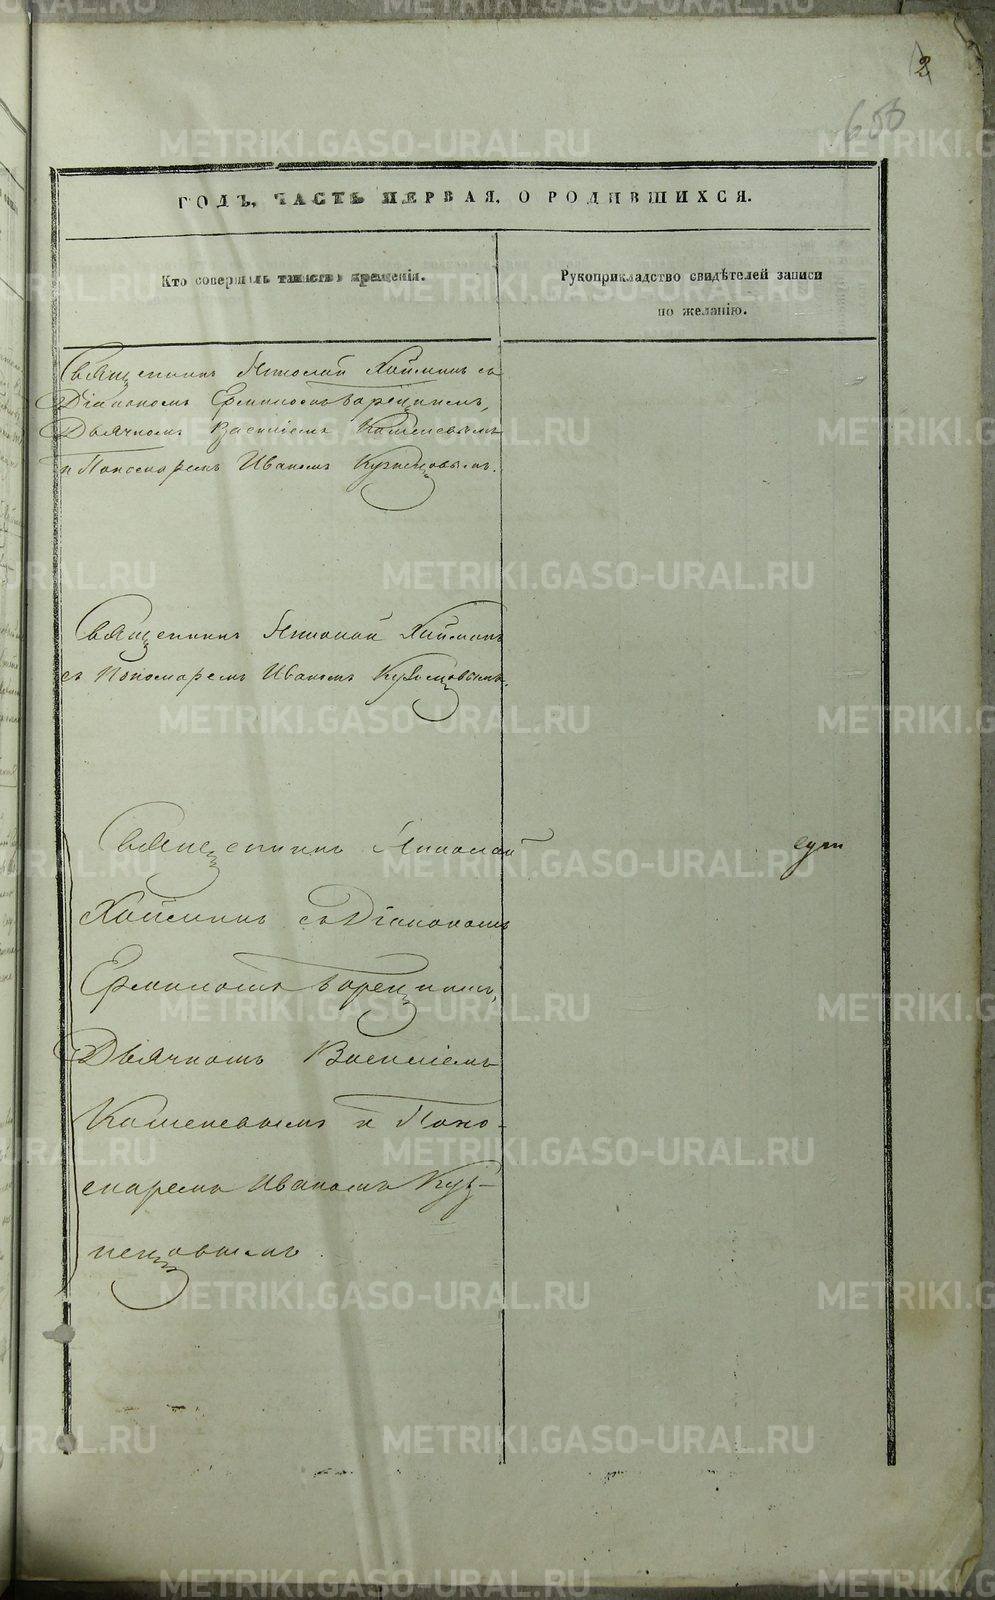 2
653
ГОДЪ, ЧАСТЬ ПЕРВАЯ, О РОДИВШИХСЯ.
Кто совершалъ таинство крещенія.
Рукоприкладство свидѣтелей записи
по желанію.
Священникъ Николай Хайминъ съ
Діакономъ Ермиломъ
Дьячкомъ Василіемъ Кошелевымъ
и Пономаремъ Иваномъ Кузнецовымъ.
Священникъ Николай Хайминъ
съ Пономаремъ Иваномъ Кузнецовымъ.
Священникъ Николай
Хайминъ съ Діакономъ
Ермиломъ
Дьячкомъ Василіемъ
Кошелевымъ и Поно-
маремъ Иваномъ Куз-
нецовымъ.
METRIKI.GASO-URAL.RU